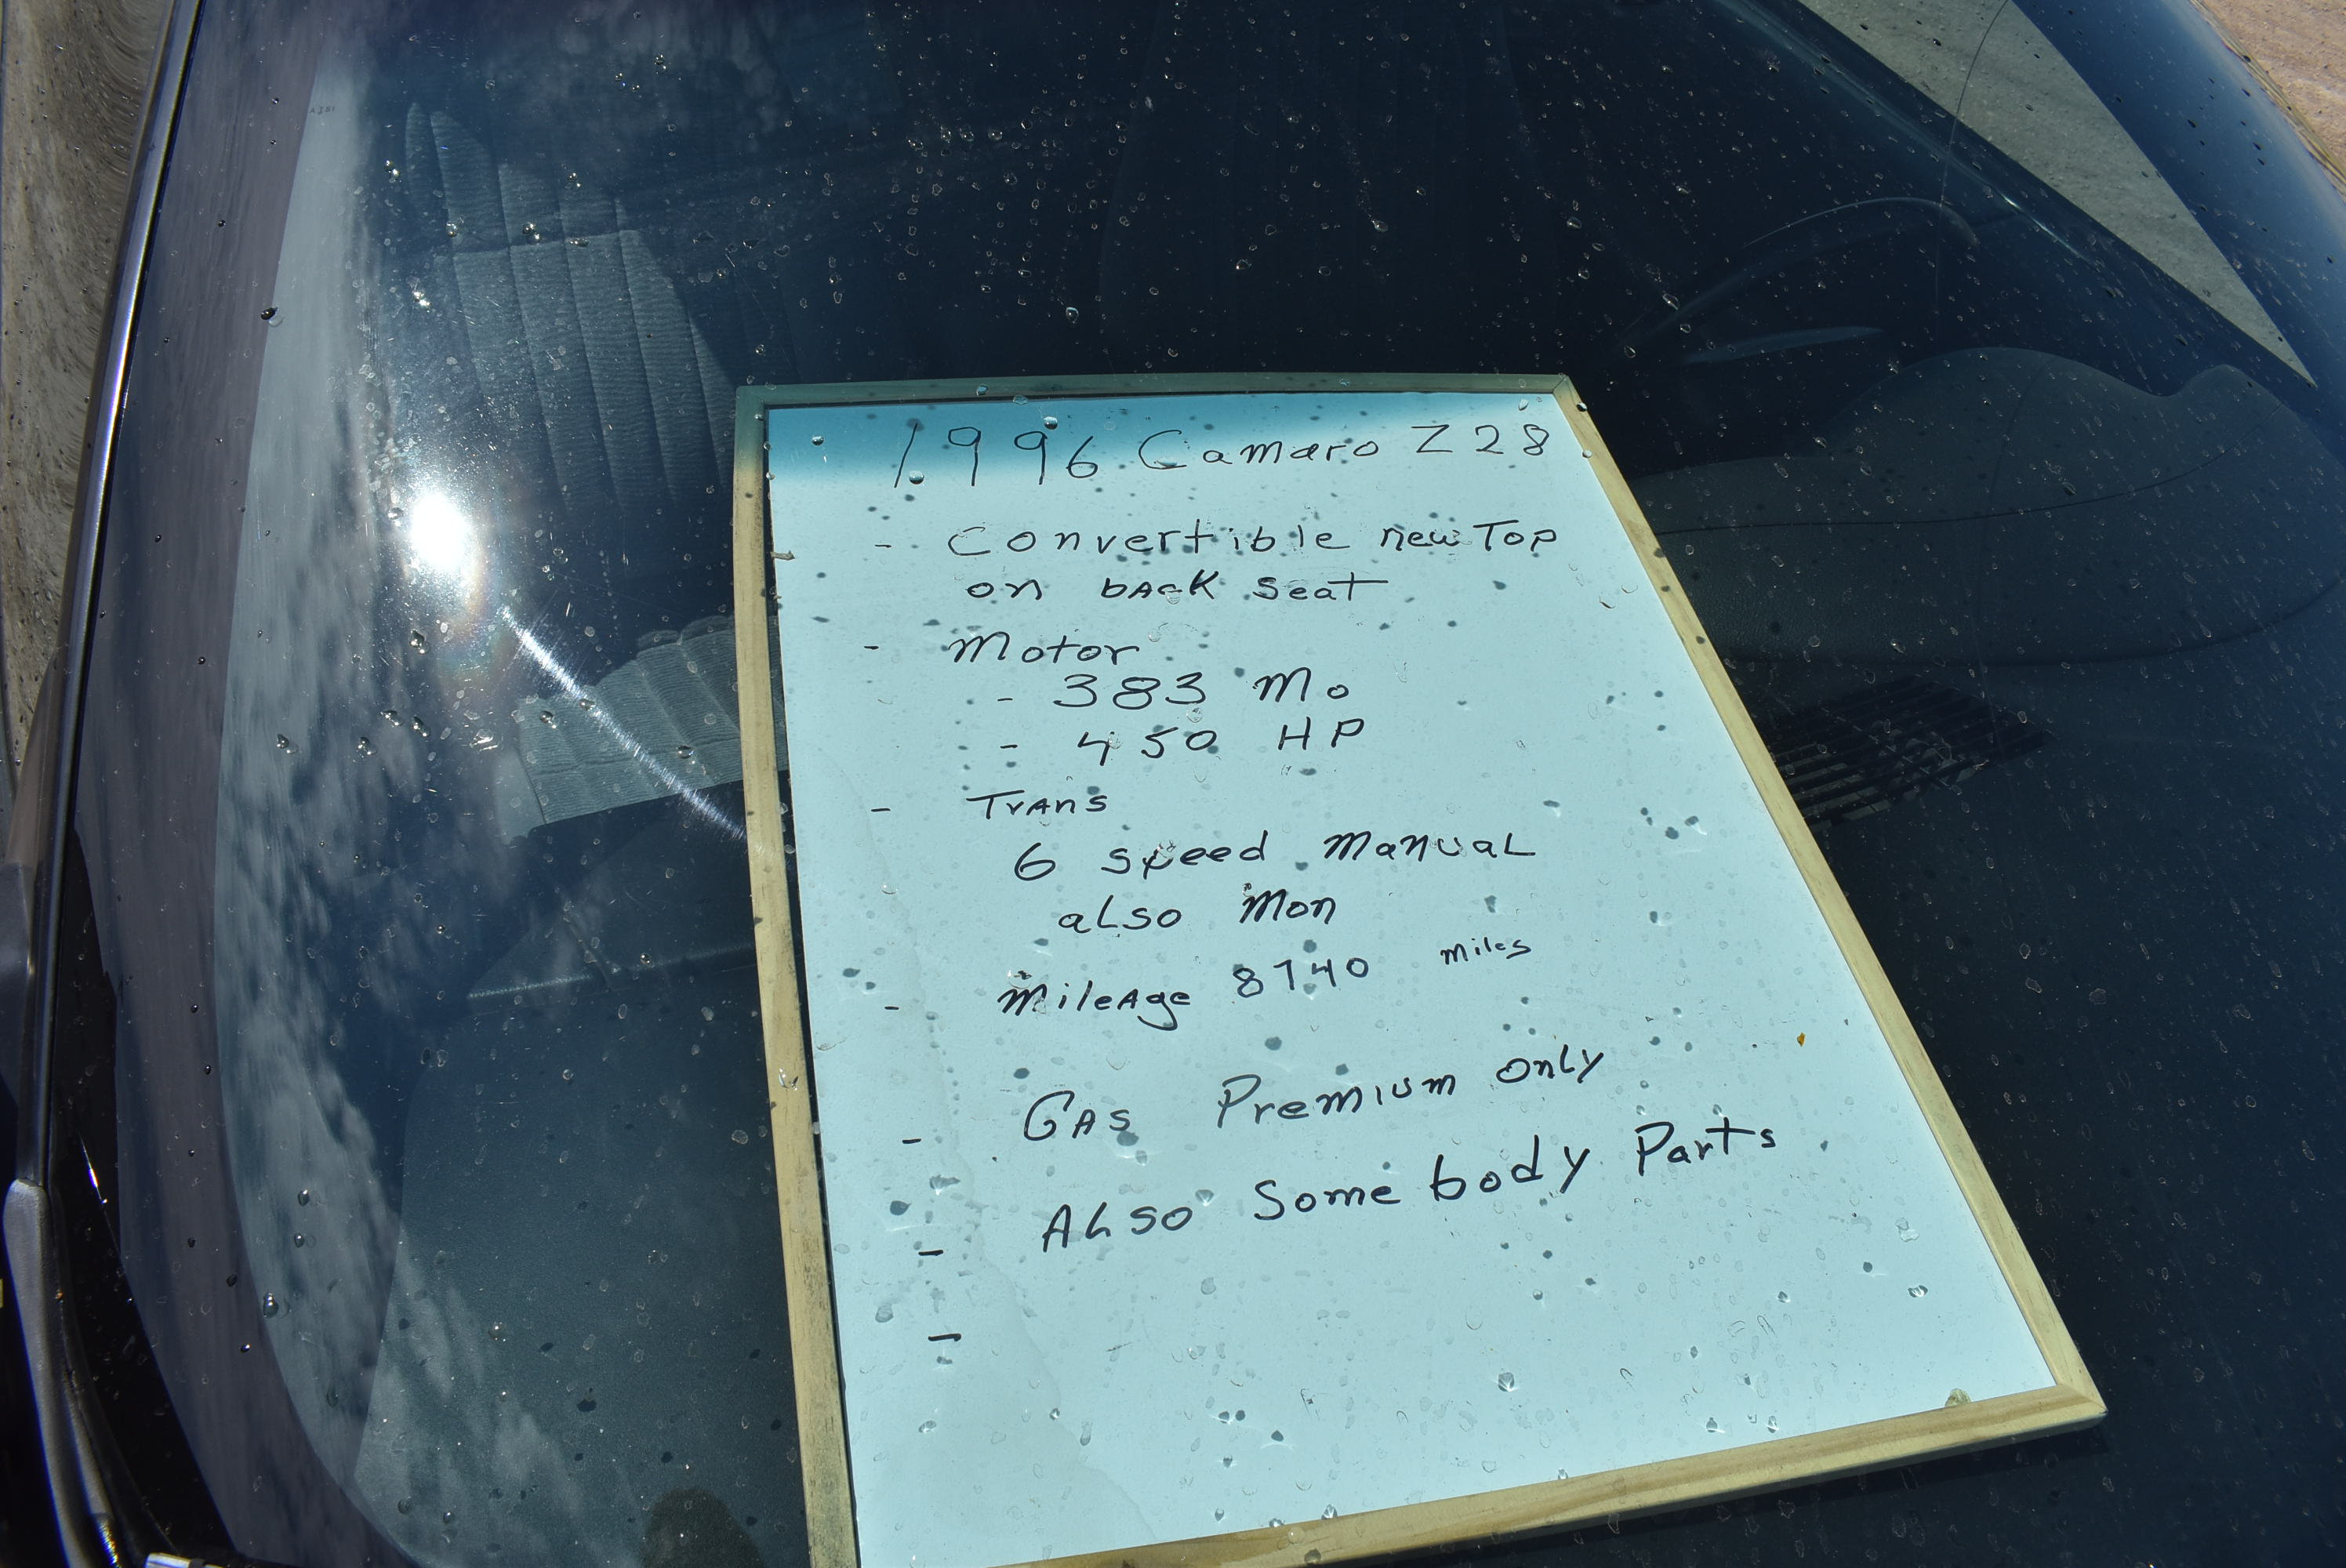 1996 Camaro Z28
- Convertible new Top
on back seat
- Motor
- 383 Mo
- 450 HP
- Trans
6 speed Manual
also Mon
- Mileage 8740 miles
- Gas Premium Only
- Also Some body Parts
-